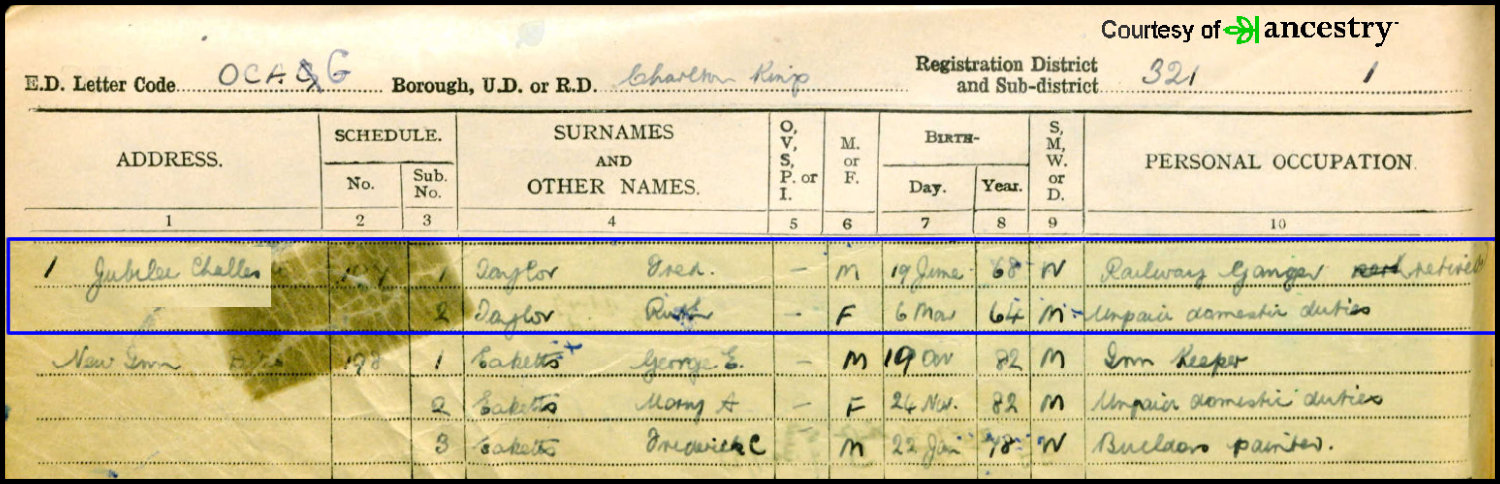 Courtesy of ancestry
E.D. Letter Code OCA G Borough, U.D. or R.D. Charlton Kings Registration District and Sub-district 321 1
ADDRESS. SCHEDULE. No. Sub. No. SURNAMES AND OTHER NAMES. O, V, S, P. or I. M. or F. BIRTH- Day. Year. S, M, W. or D. PERSONAL OCCUPATION.
1 2 3 4 5 6 7 8 9 10
1 Jubilee 1 Taylor Fred. – M 19 June 68 Railway Ganger retired
2 Taylor Ruth – F 6 Mar 64 M Unpaid domestic duties
New Inn 198 1 Eaketts George E. – M 19 82 M Inn Keeper
2 Eaketts Mary A – F 24 Nov. 82 M Unpaid domestic duties
3 Eaketts Frederick C M 22 Jan 78 Builders painter.